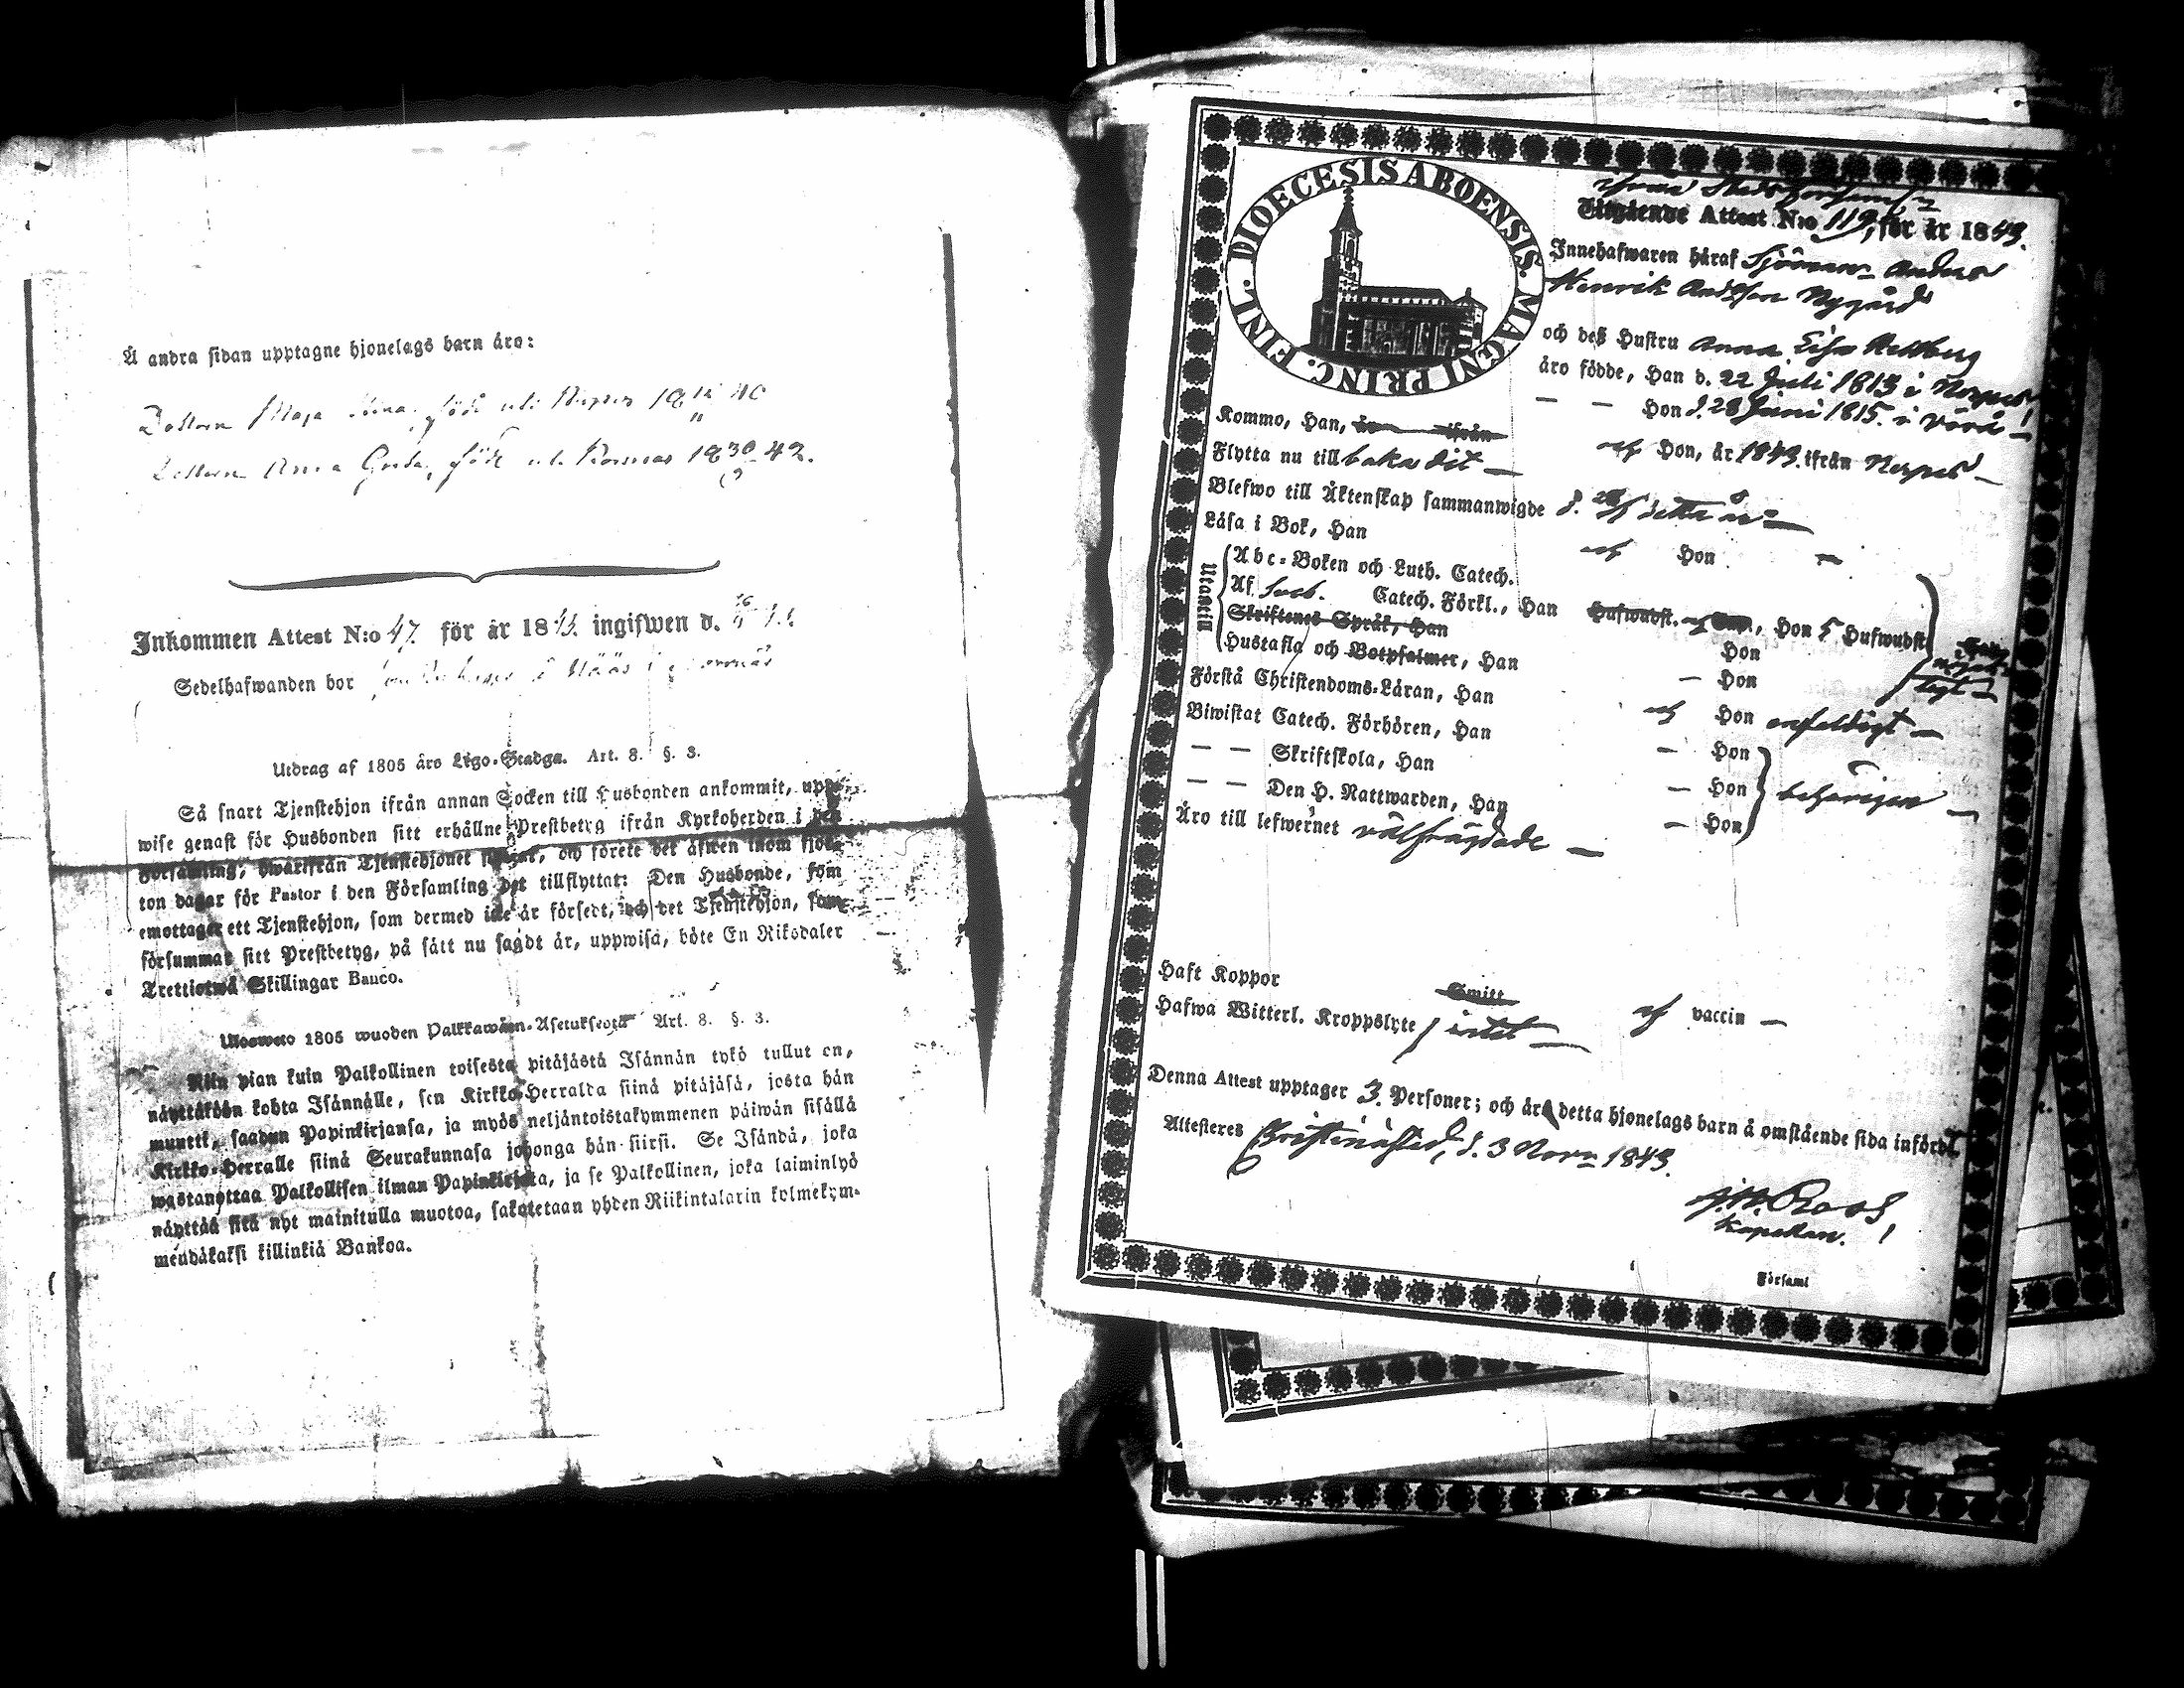 Å andra sidan upptagne hjonelags barn äro:
Dottern Maja född uti 18 40
Dottern Anna Greta, född uti 18 30/9 42.
Inkommen Attest N:o 47 för år 18 ingifwen d.
Sedelhafwanden bor
Utdrag af 1805 års Lego-Stadga. Art. 8. §. 3.
Så snart Tjenstehjon ifrån annan Socken till Husbonden ankommit, upp-
wise genast för Husbonden sitt erhållne Prestbetyg ifrån Kyrkoherden i den
Församling, hwarifrån Tjenstehjonet och förete det äfwen inom fjor-
ton dagar för Pastor i den Församling det tillflyttat: Den Husbonde, som
emottager ett Tjenstehjon, som dermed icke är försedt, och det Tjenstehjon, som
försummar sitt Prestbetyg, på sätt nu sagdt är, uppwisa, böte En Riksdaler
Trettiotwå Skillingar Banco.
Ulosweto 1805 wuoden Palkkawäen-Asetuksesta Art. 8. §. 3.
Niin pian kuin Palkollinen toisesta pitäjästä Isännän tykö tullut on,
näyttäköön kohta Isännälle, sen Kirkko-Herralda siinä pitäjäsä, josta hän
muutti, saadun Papinkirjansa, ja myös neljäntoistakymmenen päiwän sisällä
Kirkko-Herralle siinä Seurakunnasa johonga hän siirsi. Se Isändä, joka
wastanottaa Palkollisen ilman Papinkirjata, ja se Palkollinen, joka laiminlyö
näyttää sitä nyt mainitulla muotoa, sakotetaan yhden Riikintalarin kolmekym-
mendäkaksi killinkiä Bankoa.
DIOECESIS ABOENSIS. MAGNI PRINC. FINL.
Utgående Attest N:o 119, för år 1843.
Innehafwaren häraf Sjöman Anders
Henrik Andsson Nygård
och deß Hustru Anna Lisa
äro födde, Han d. 22 Juli 1813 i Nerpes
— — Hon d. 28 Juni 1815. i Vörå —
Kommo, Han, är ifrån och Hon, år 1843. ifrån Nerpes —
Flytta nu till baka dit —
Blefwo till Äktenskap sammanwigde d. detta år —
Läsa i Bok, Han och Hon
Utantill
Abc-Boken och Luth. Catech.
Af Sveb. Catech. Förkl., Han Hufwudst. Hon 5 Hufwudst
Skriftenes Språk, Han Hon
Hustafla och Botpsalmer, Han — Hon
Förstå Christendoms-Läran, Han och Hon enfaldigt —
Biwistat Catech. Förhören, Han — Hon
— — Skriftskola, Han — Hon
— — Den H. Nattwarden, Han — Hon
behörigen —
Äro till lefwernet välfrägdade —
Haft Koppor Smitt och vaccin —
Hafwa Witterl. Kroppslyte intet —
Denna Attest upptager 3. Personer; och är detta hjonelags barn å omstående sida infördt
Attesteras Christinæstad, d. 3 Novr 1843.
Kapellan.
Församl